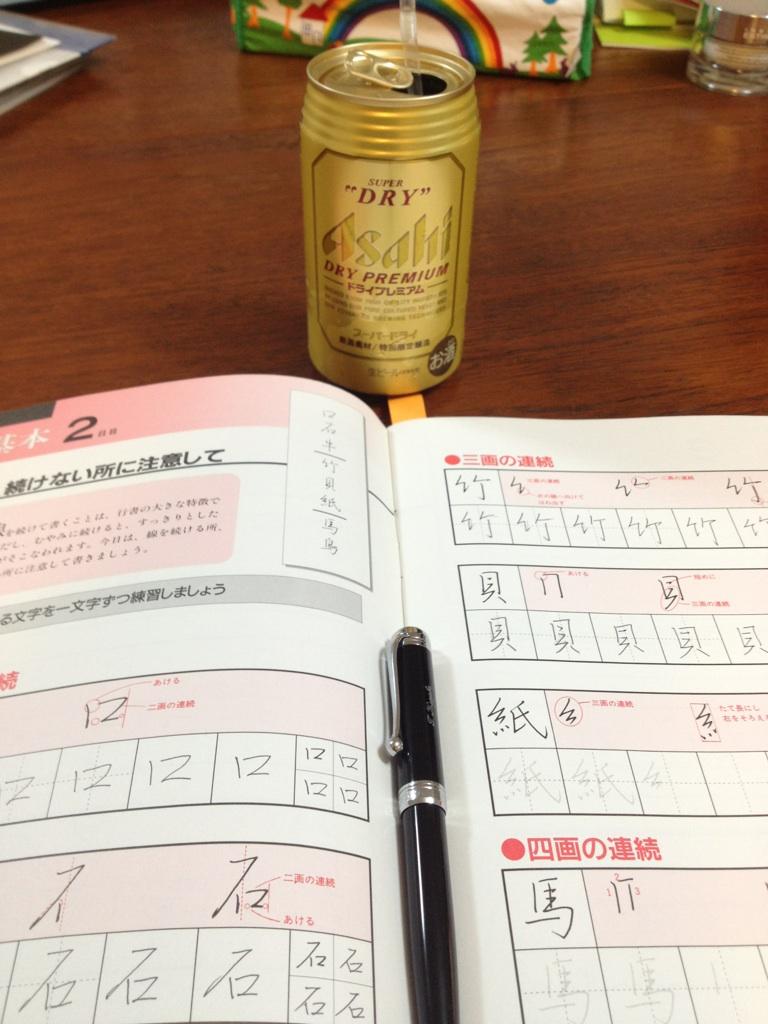 SUPER
"DRY"
Asahi
DRY PREMIUM
ドライプレミアム
スーパードライ
お酒
基本 2日目
続けない所に注意して
を続けて書くことは、行書の大きな特徴で
だし、むやみに続けると、すっきりとした
がそこなわれます。今日は、線を続ける所、
所に注意して書きましょう。
口石牛竹貝紙馬鳥
る文字を一文字ずつ練習しましょう
続
口
あける
二画の連続
口 口 口 口 口
口 口
石
二画の連続
あける
石 石 石 石 石
石 石
●三画の連続
竹
三画の連続
三画の連続
竹 竹 竹 竹 竹 竹
貝
あける
短めに
三画の連続
貝 貝 貝 貝 貝
紙
三画の連続
たて長にし
右をそろえ
紙 紙
●四画の連続
馬
1 2 3
馬 馬